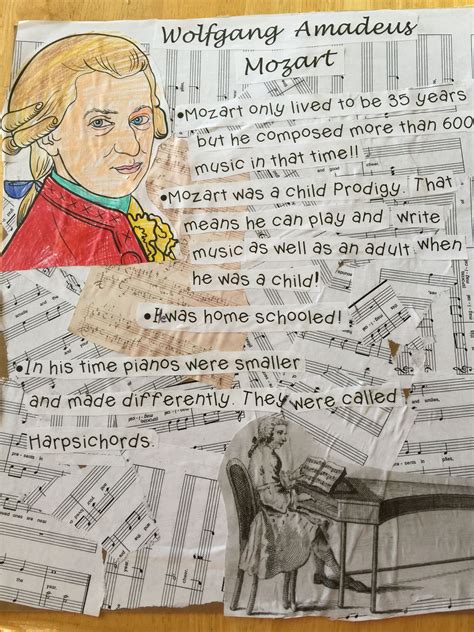 Wolfgang Amadeus
Mozart
•Mozart only lived to be 35 years
but he composed more than 600
music in that time!!
•Mozart was a child Prodigy. That
means he can play and write
music as well as an adult when
he was a child!
•He was home schooled!
•In his time pianos were smaller
and made differently. They were called
Harpsichords.